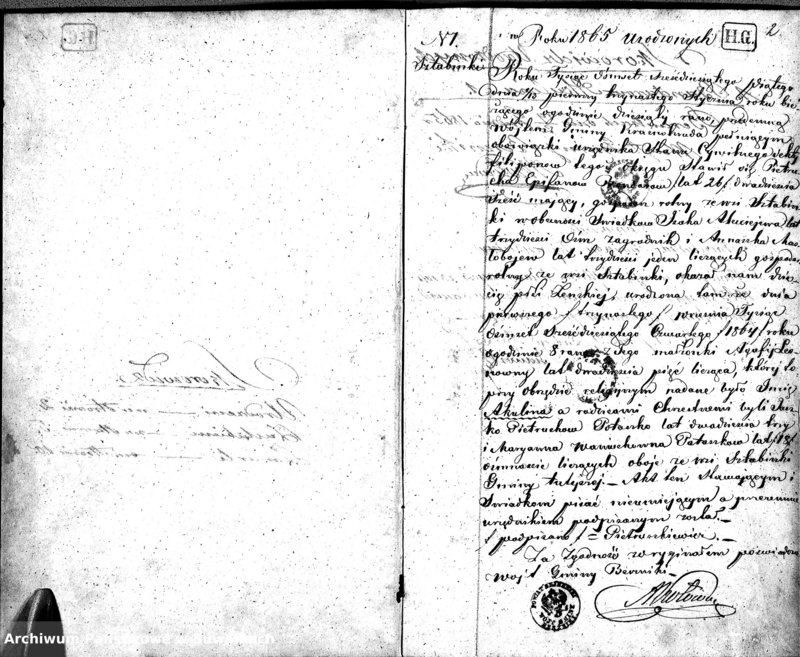 Skorowidz
Urodzeni — na stronie 2
N 1.
Sztabinki
w Roku 1865 urodzonych
H.G.
2
Roku Tysiąc Ośmset sześćdziesiątego piątego
dnia 1/13 pierwszy trzynastego Stycznia roku bie-
żącego o godzinie dziesiątej rano, przedemną
Wójtem Gminy Krasnowo pełniącym
obowiązki urzędnika Stanu Cywilnego sekty
filiponow tego okręgu Stawił się Pietru-
cha Epifanow lat 26/ dwadzieścia
sześć mający, gospodarz rolny ze wsi Sztabin-
ki w obecności Świadków Izaka Aleksiejewa lat
trzydzieści Ośm zagrodnik i Ananiszka
lat trzydzieści jeden liczących gospodarz
rolny ze wsi Sztabinki, okazał nam dzie-
cię płci Żeńskiej, urodzone tamże dnia
pierwszego / trzynastego / września Tysiąc
Ośmset Sześćdziesiątego Czwartego /1864/ roku
o godzinie 8 rano z Jego małżonki Agafii Leo-
nowny lat dwadzieścia pięć liczącą, której to
przy obrzędzie religijnym nadane było Imię
Akulina a rodzicami Chrzestnemi byli
Pietruchow Potaszko lat dwadzieścia trzy
i Maryanna Potaszkow lat /18/
ośmnaście liczących oboje ze wsi Sztabinki
Gminy tutejszej — Akt ten Stawającym i
Świadkom pisać nieumiejącym a przezemnie
urzędnikiem podpisanym został. —
/ podpisano / = Pietraszkiewicz. —
Za Zgodność z oryginałem poświadcza
Wójt Gminy Berżniki —
Archiwum Państwowe w Suwałkach